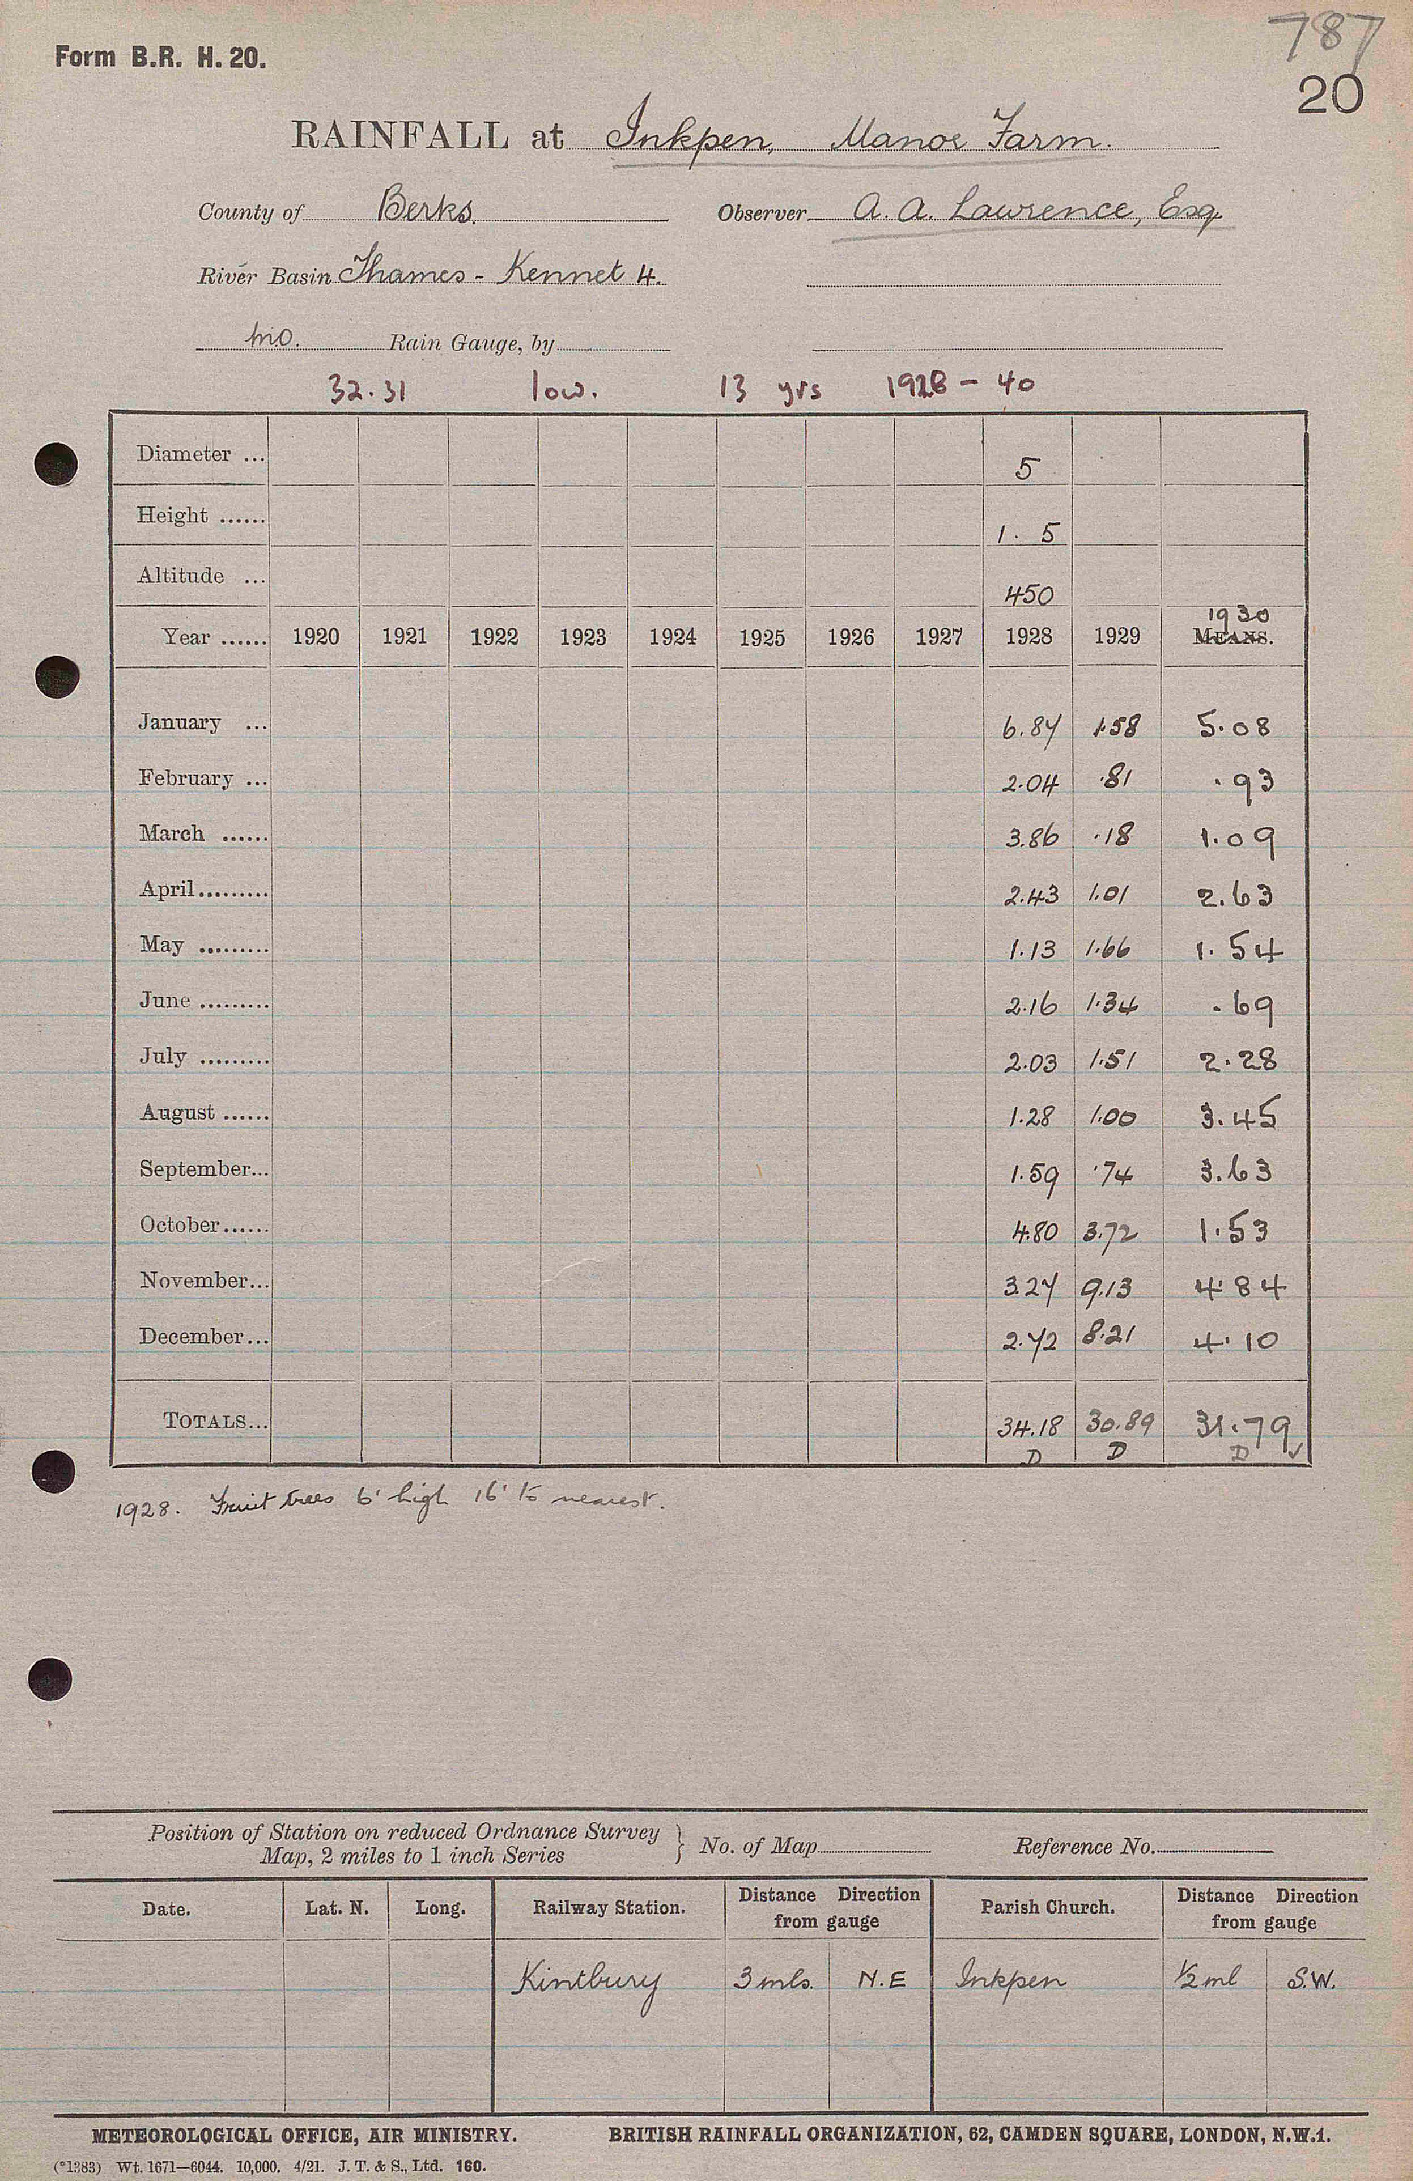 787
Form B.R. H. 20.
20
RAINFALL at Inkpen, Manor Farm.
County of Berks. Observer A. A. Lawrence, Esq
River Basin Thames - Kennet 4.
mo. Rain Gauge, by
32.31 low. 13 yrs 1928 - 40
Diameter ... 5
Height ...... 1. 5
Altitude ... 450
1930
Year ...... 1920 1921 1922 1923 1924 1925 1926 1927 1928 1929 MEANS.
January ... 6.87 1.58 5.08
February ... 2.04 .81 .93
March ...... 3.86 .18 1.09
April......... 2.43 1.01 2.63
May ......... 1.13 1.66 1.54
June ......... 2.16 1.34 .69
July ......... 2.03 1.51 2.28
August ...... 1.28 1.00 3.45
September... 1.59 .74 3.63
October...... 4.80 3.72 1.53
November... 3.27 9.13 4.84
December... 2.72 8.21 4.10
TOTALS... 34.18 30.89 31.79
D D D ✓
1928. Fruit trees 6' high 16' to nearest.
Position of Station on reduced Ordnance Survey
Map, 2 miles to 1 inch Series } No. of Map Reference No.
Date. Lat. N. Long. Railway Station. Distance Direction from gauge Parish Church. Distance Direction from gauge
Kintbury 3 mls. N.E Inkpen ½ ml S.W.
METEOROLOGICAL OFFICE, AIR MINISTRY. BRITISH RAINFALL ORGANIZATION, 62, CAMDEN SQUARE, LONDON, N.W.1.
(*1383) Wt. 1671—6044. 10,000. 4/21. J. T. & S., Ltd. 160.